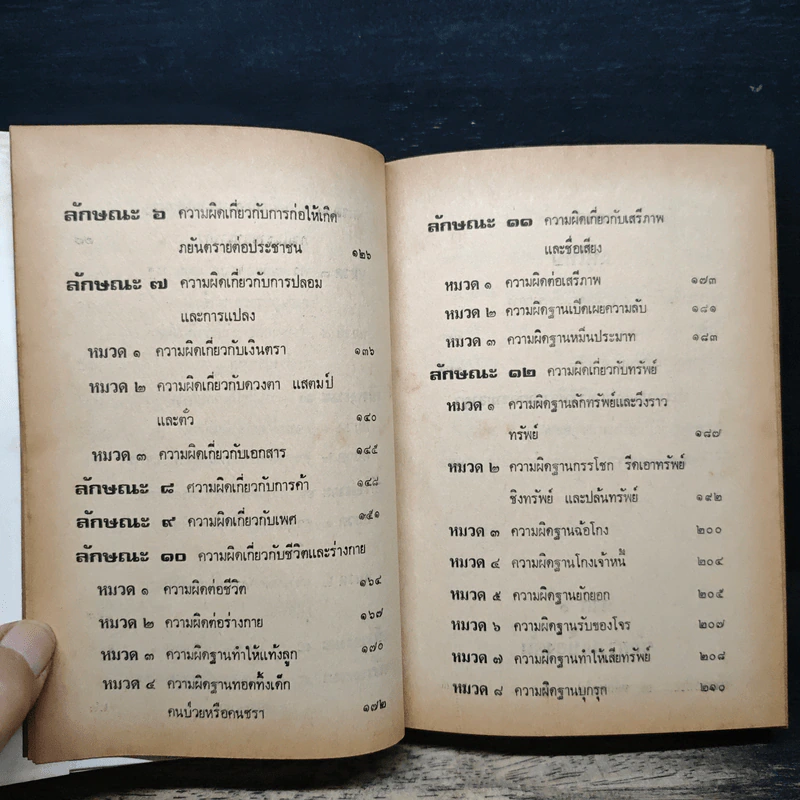 ลักษณะ ๖ ความผิดเกี่ยวกับการก่อให้เกิด
ภยันตรายต่อประชาชน ๑๒๖
ลักษณะ ๗ ความผิดเกี่ยวกับการปลอม
และการแปลง
หมวด ๑ ความผิดเกี่ยวกับเงินตรา ๑๓๖
หมวด ๒ ความผิดเกี่ยวกับดวงตา แสตมป์
และตั๋ว ๑๔๐
หมวด ๓ ความผิดเกี่ยวกับเอกสาร ๑๔๕
ลักษณะ ๘ ความผิดเกี่ยวกับการค้า ๑๔๘
ลักษณะ ๙ ความผิดเกี่ยวกับเพศ ๑๕๑
ลักษณะ ๑๐ ความผิดเกี่ยวกับชีวิตและร่างกาย
หมวด ๑ ความผิดต่อชีวิต ๑๖๔
หมวด ๒ ความผิดต่อร่างกาย ๑๖๗
หมวด ๓ ความผิดฐานทำให้แท้งลูก ๑๗๐
หมวด ๔ ความผิดฐานทอดทิ้งเด็ก
คนป่วยหรือคนชรา ๑๗๒
ลักษณะ ๑๑ ความผิดเกี่ยวกับเสรีภาพ
และชื่อเสียง
หมวด ๑ ความผิดต่อเสรีภาพ ๑๗๓
หมวด ๒ ความผิดฐานเปิดเผยความลับ ๑๘๑
หมวด ๓ ความผิดฐานหมิ่นประมาท ๑๘๓
ลักษณะ ๑๒ ความผิดเกี่ยวกับทรัพย์
หมวด ๑ ความผิดฐานลักทรัพย์และวิ่งราว
ทรัพย์ ๑๘๗
หมวด ๒ ความผิดฐานกรรโชก รีดเอาทรัพย์
ชิงทรัพย์ และปล้นทรัพย์ ๑๙๒
หมวด ๓ ความผิดฐานฉ้อโกง ๒๐๐
หมวด ๔ ความผิดฐานโกงเจ้าหนี้ ๒๐๔
หมวด ๕ ความผิดฐานยักยอก ๒๐๕
หมวด ๖ ความผิดฐานรับของโจร ๒๐๗
หมวด ๗ ความผิดฐานทำให้เสียทรัพย์ ๒๐๘
หมวด ๘ ความผิดฐานบุกรุก ๒๑๐